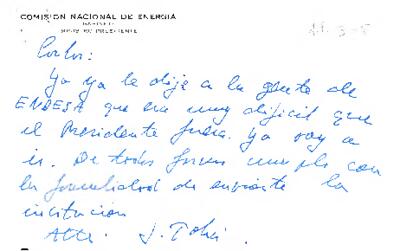 COMISION NACIONAL DE ENERGIA
MINISTRO PRESIDENTE
Carlos:
Yo ya le dije a la gente de
ENDESA que era muy dificil que
el Presidente fuera. Yo voy a
ir. De todas formas cumplo con
la formalidad de enviarte la
invitacion
Atte. J. Tohá.